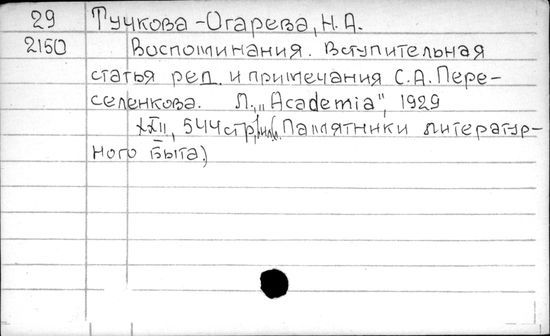 29 Тучкова-Огарева, Н.А.
2150 Воспоминания. Вступительная
статья ред. и примечания С.А. Пере-
селенкова. Л., „Academia", 1929
XXII, 544 стр. (Памятники литератур-
ного быта)